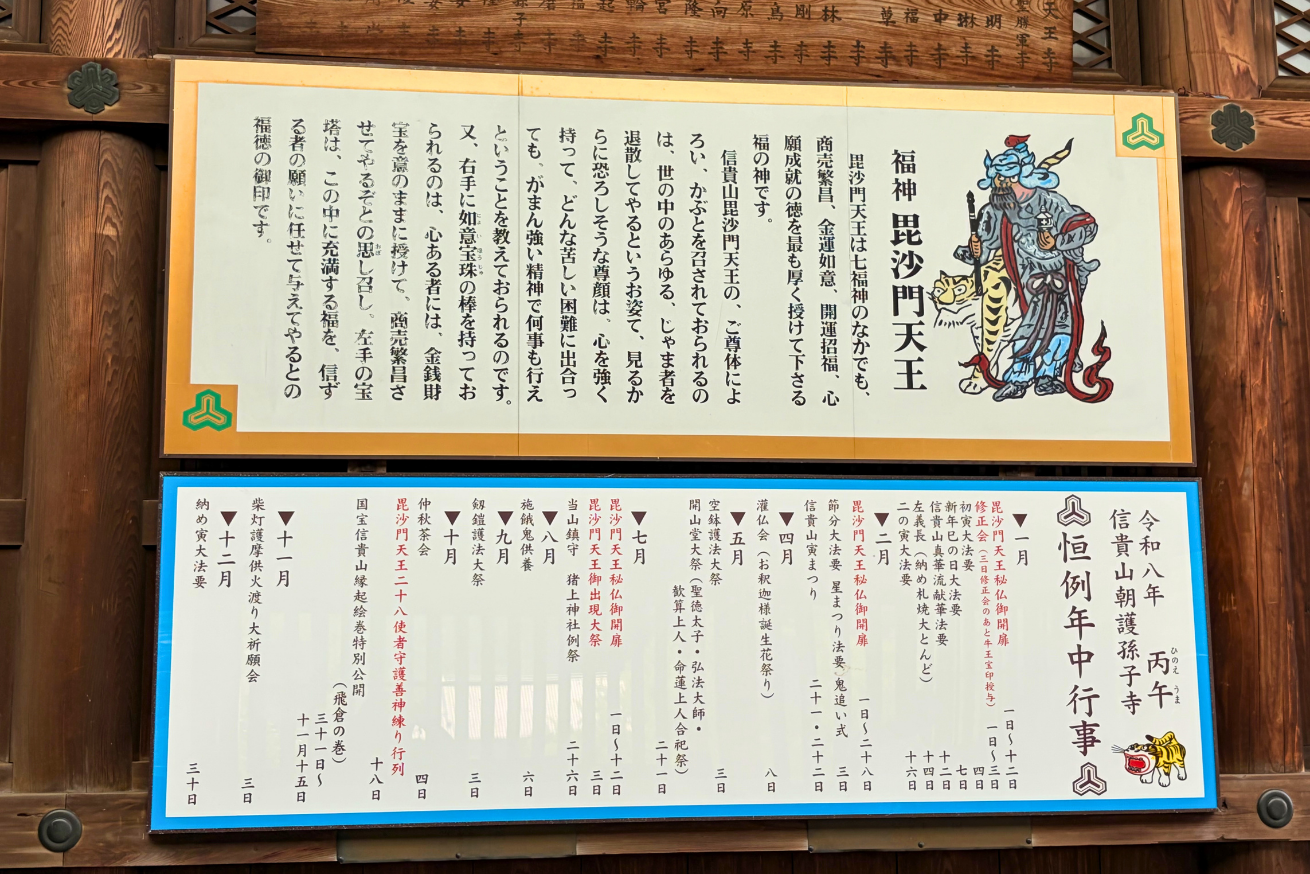 福神 毘沙門天王
毘沙門天王は七福神のなかでも、
商売繁昌、金運如意、開運招福、心
願成就の徳を最も厚く授けて下さる
福の神です。
信貴山毘沙門天王の、ご尊体によ
ろい、かぶとを召されておられるの
は、世の中のあらゆる、じゃま者を
退散してやるというお姿で、見るか
らに恐ろしそうな尊顔は、心を強く
持って、どんな苦しい困難に出合っ
ても、がまん強い精神で何事も行え
ということを教えておられるのです。
又、右手に如意宝珠の棒を持ってお
られるのは、心ある者には、金銭財
宝を意のままに授けて、商売繁昌さ
せてやるぞとの思し召し、左手の宝
塔は、この中に充満する福を、信ず
る者の願いに任せて与えてやるとの
福徳の御印です。
令和八年 丙午
ひのえ うま
信貴山朝護孫子寺
恒例年中行事
▼一月
毘沙門天王秘仏御開扉 一日〜十二日
修正会(三日修正会のあと牛王宝印授与) 一日〜三日
初寅大法要 四日
新年巳の日大法要 七日
信貴山真華流献華法要 十二日
左義長(納め札焼大とんど) 十四日
二の寅大法要 十六日
▼二月
毘沙門天王秘仏御開扉 一日〜二十八日
節分大法要 星まつり法要 鬼追い式 三日
信貴山寅まつり 二十一・二十二日
▼四月
灌仏会(お釈迦様誕生花祭り) 八日
▼五月
空鉢護法大祭 三日
開山堂大祭(聖徳太子・弘法大師・
歓算上人・命蓮上人合祀祭) 二十一日
▼七月
毘沙門天王秘仏御開扉 一日〜十二日
毘沙門天王御出現大祭 三日
当山鎮守 猪上神社例祭 二十六日
▼八月
施餓鬼供養 六日
▼九月
剱鎧護法大祭 三日
▼十月
仲秋茶会 四日
毘沙門天王二十八使者守護善神練り行列 十八日
国宝信貴山縁起絵巻特別公開
(飛倉の巻) 三十一日〜
十一月十五日
▼十一月
柴灯護摩供火渡り大祈願会 三日
▼十二月
納め寅大法要 三十日